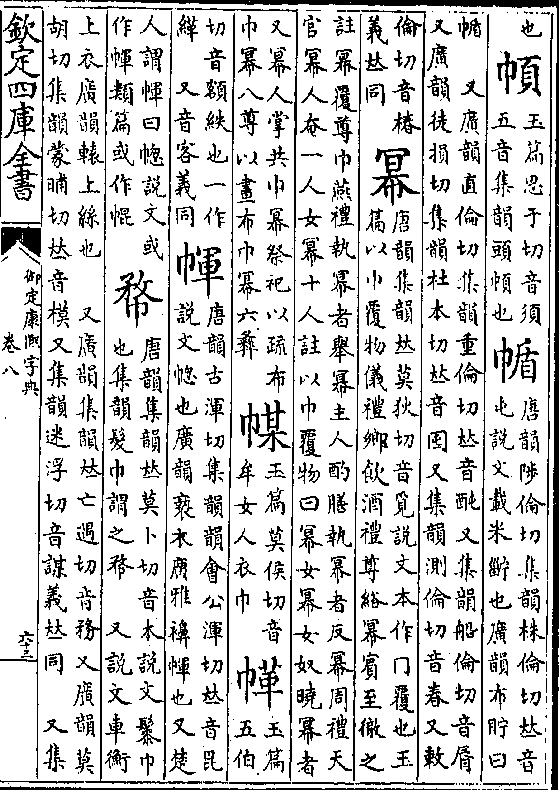 也
玉篇思于切音須
五音集韻頭也
㡒
唐韻陟倫切集韻株倫切𠀤音
屯說文載米也廣韻布貯曰
㡒 又廣韻直倫切集韻重倫切𠀤音 又集韻船倫切音脣
又廣韻徒損切集韻杜本切𠀤音囤又集韻測倫切音春又敕
倫切音椿
義𠀤同
冪
唐韻集韻𠀤莫狄切音覓說文本作冖覆也玉
篇以巾覆物儀禮鄉飲酒禮尊綌冪賓至徹之
註冪覆尊巾燕禮執冪者舉冪主人酌膳執冪者反冪周禮天
官冪人奄一人女冪十人註以巾覆物曰冪女冪女奴曉冪者
又冪人掌共巾冪祭祀以疏布
巾冪八尊以畫布巾冪六彝
玉篇莫侯切音
牟女人衣巾
玉篇
五伯
切音額紩也一作
緙 又音客義同
㡓
唐韻古渾切集韻韻會公渾切𠀤音昆
說文幒也廣韻褻衣廣雅褌㡓也又楚
人謂㡓曰幒說文或
作㡓類篇或作
㡔
唐韻集韻𠀤莫卜切音木說文鬃巾
也集韻髮巾謂之㡔 又說文車衡
上衣廣韻轅上絲也 又廣韻集韻𠀤亡遇切音務又廣韻莫
胡切集韻蒙晡切𠀤音模又集韻迷浮切音謀義𠀤同 又集
欽定四庫全書
御定康熙字典
卷八
六十三